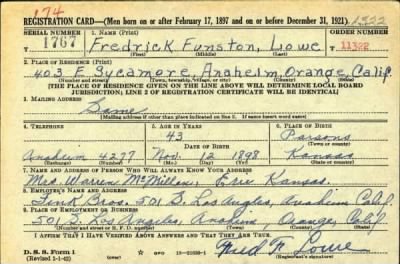 174
REGISTRATION CARD—(Men born on or after February 17, 1897 and on or before December 31, 1921) 1322
SERIAL NUMBER 1. NAME (Print) ORDER NUMBER
1767 Fredrick Funston, Lowe 11322
(First) (Middle) (Last)
2. PLACE OF RESIDENCE (Print)
403 E. Sycamore, Anaheim, Orange, Calif
(Number and street) (Town, township, village, or city) (County) (State)
[THE PLACE OF RESIDENCE GIVEN ON THE LINE ABOVE WILL DETERMINE LOCAL BOARD
JURISDICTION; LINE 2 OF REGISTRATION CERTIFICATE WILL BE IDENTICAL]
3. MAILING ADDRESS
Same
(Mailing address if other than place indicated on line 2. If same insert word same)
4. TELEPHONE 5. AGE IN YEARS 6. PLACE OF BIRTH
43 Parsons
DATE OF BIRTH (Town or county)
Anaheim 4277 Nov. 12 1898 Kansas
(Exchange) (Number) (Mo.) (Day) (Yr.) (State or country)
7. NAME AND ADDRESS OF PERSON WHO WILL ALWAYS KNOW YOUR ADDRESS
Mrs. Warren McMillen, Erie Kansas.
8. EMPLOYER'S NAME AND ADDRESS
Bros. 501 S. Los Angeles, Anaheim Calif.
9. PLACE OF EMPLOYMENT OR BUSINESS
501 S. Los Angeles, Anaheim Orange, Calif
(Number and street or R. F. D. number) (Town) (County) (State)
I AFFIRM THAT I HAVE VERIFIED ABOVE ANSWERS AND THAT THEY ARE TRUE.
D. S. S. Form 1
(Revised 1-1-42) (over) GPO Fred F. Lowe